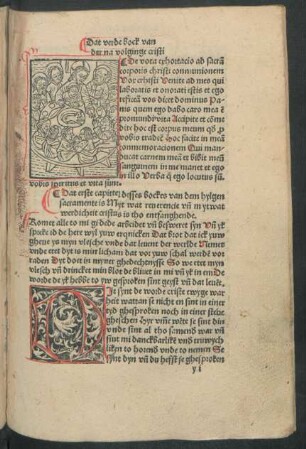 Dat verde boek van
der na volginge cristi
De vota exhortacio ad sacrā
corporis christi cōmunionem
Vor cristi Venite ad me qui
laboratis et onorati estis et ego
reficiā vos dicit dominus Pa-
nis quem ego dabo caro mea ē
pro mundi vita Accipite et come
dite hoc est corpus meum qd' p
vobis tradet' Hoc facite in meā
commemoracionem Qui man
ducat carnem meā et bibit meū
sanguinem in me manet et ego
in illo Verba q̄ ego locutus sū
vobis spiritus et vita sunt
Dat erste capitel desses bockes van dem hylgen
sacramente is Myt wat reuerencie vn̄ mit wat
werdicheit cristus is tho entfanghende.
Komet alle to mi gi de dar arbeiden vn̄ beswert syn Vn̄ yk
spreke id de here wyl yuw erquicken Dat brot dat ick yuw
gheue ys myn vlesch vnde dat leuent der werlde Nemet
vnde etet dyt is myn licham dat vor yuw schal werden vor
raden Dyt doet in myner ghedechtenisse So we ettet myn
vlesch vn̄ drincket min blot de bliuet in mi vn̄ yk in em De
worde de yk hebbe to yw gesproken sint geyst vn̄ dat leuēt.
It synt de worde criste
heit wattan se nicht en sint in einer
tyd ghesproken noch in einer stede
gheschreuen
vnde sint al tho samend war vn̄
sint mi danckbarlikē vnd truwych
liken to horend vnde to nemen Se
synt dyn vn̄ du heffst se ghesproken
y i